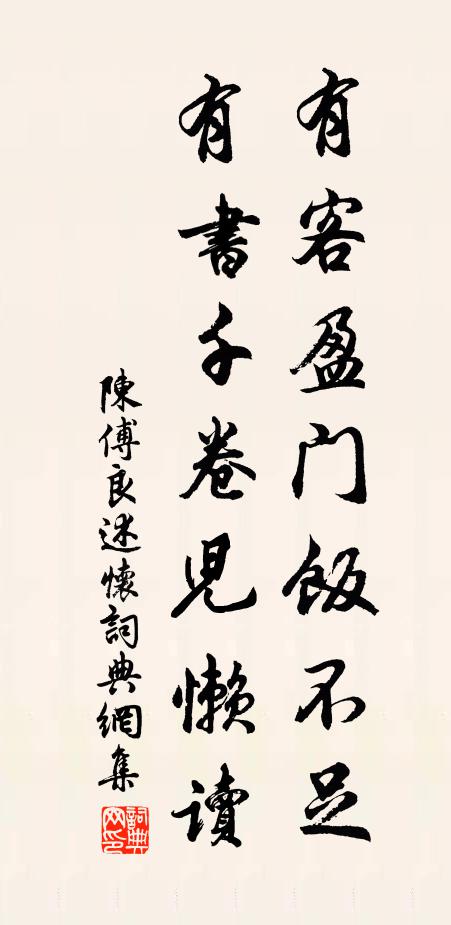 有客盈门飯不足
有書千卷児懶讀
陳傅良述懷詞典網集
詞典网印